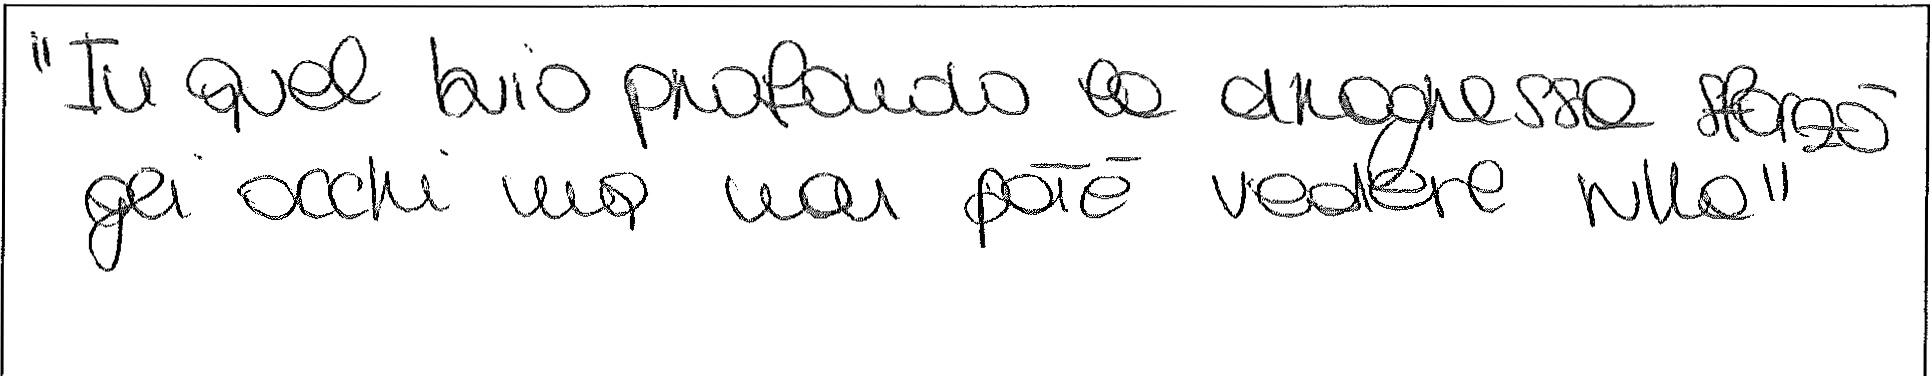 "In quel buio profondo la dragressa sforzò
gli occhi ma non potè vedere nulla"